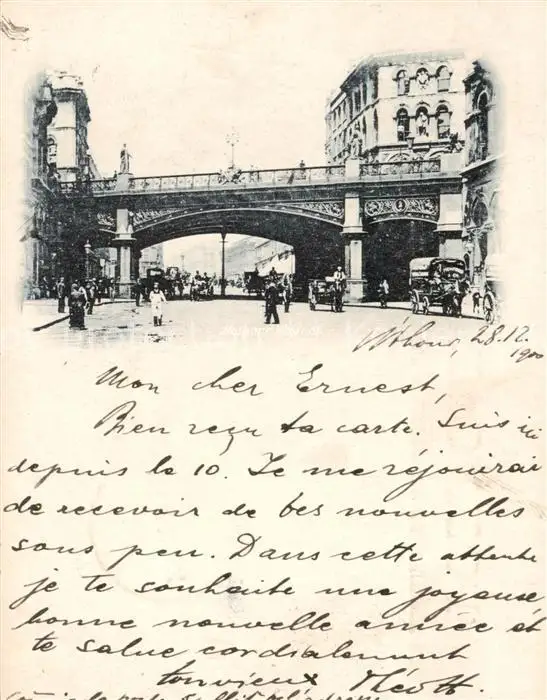 28.12.
1900
Mon cher Ernest,
Bien reçu ta carte. Suis ici
depuis le 10. Je me réjouirai
de recevoir de tes nouvelles
sous peu. Dans cette attente
je te souhaite une joyeuse
bonne nouvelle année et
te salue cordialement
ton vieux